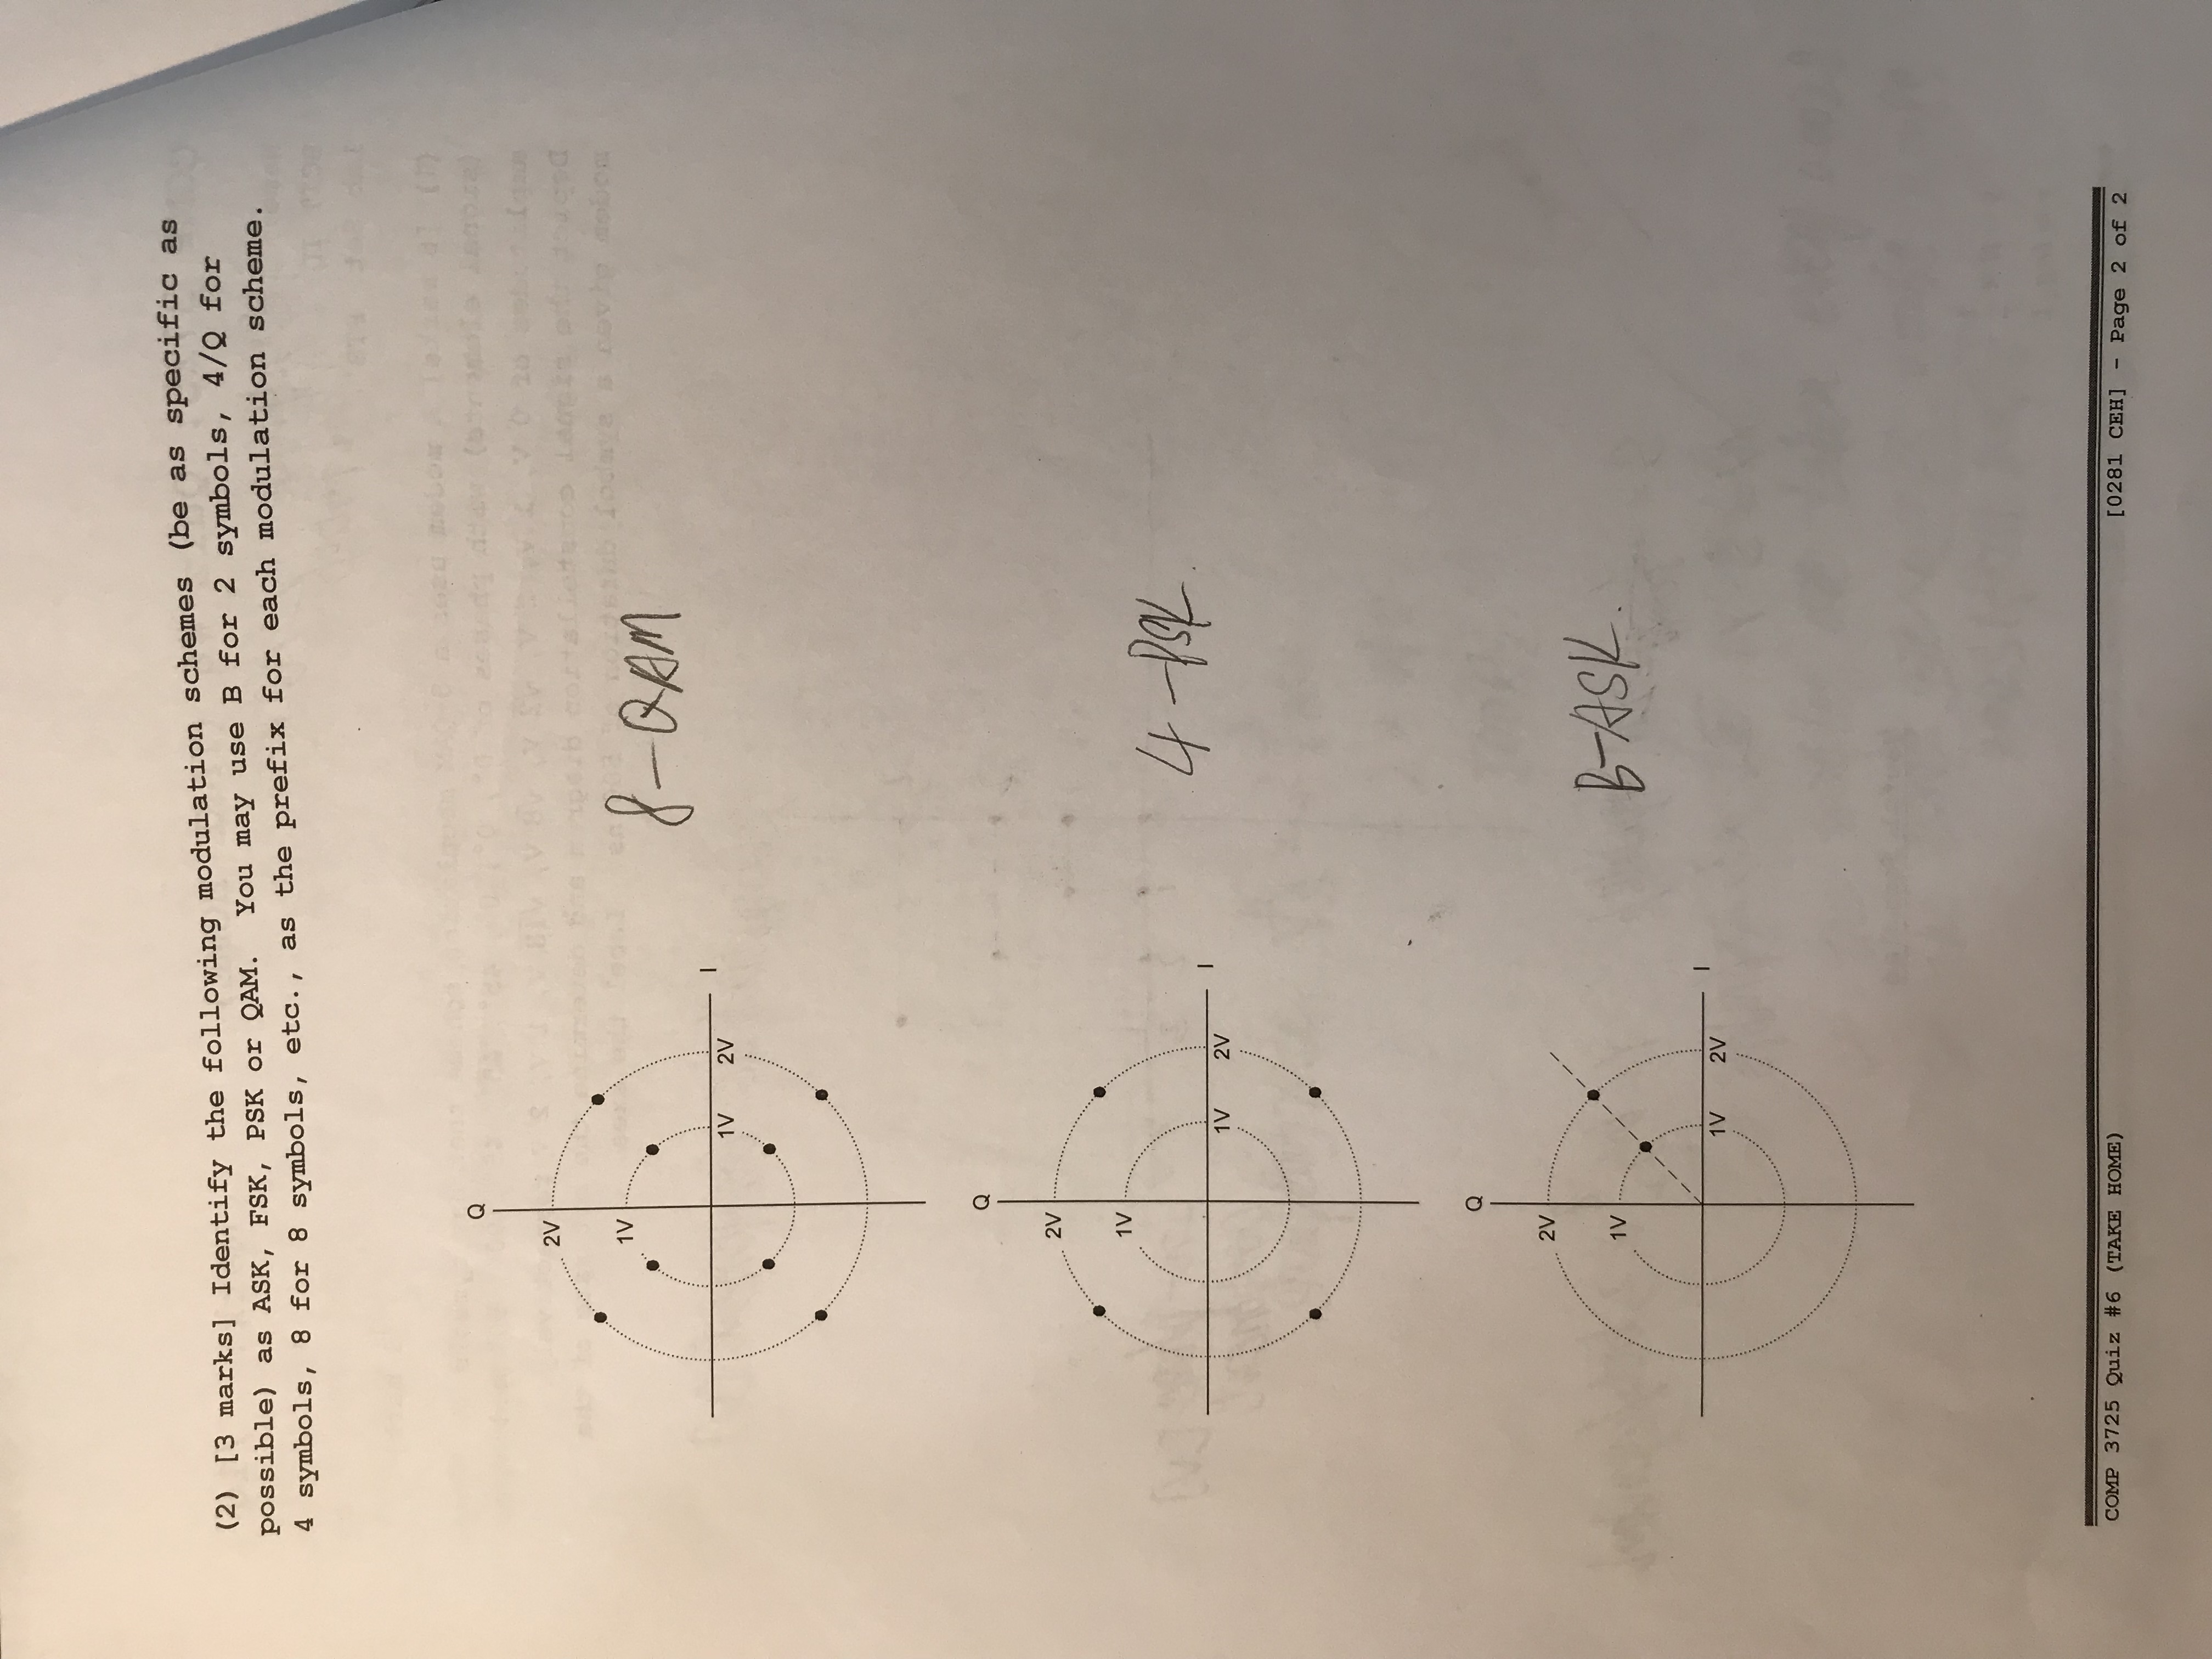 (2) [3 marks] Identify the following modulation schemes (be as specific as
possible) as ASK, FSK, PSK or QAM. You may use B for 2 symbols, 4/Q for
4 symbols, 8 for 8 symbols, etc., as the prefix for each modulation scheme.
Q
2V
1V
1V 2V I
8-QAM
Q
2V
1V
1V 2V I
4-PSK
Q
2V
1V
1V 2V I
B-ASK.
COMP 3725 Quiz #6 (TAKE HOME) [0281 CEH] - Page 2 of 2